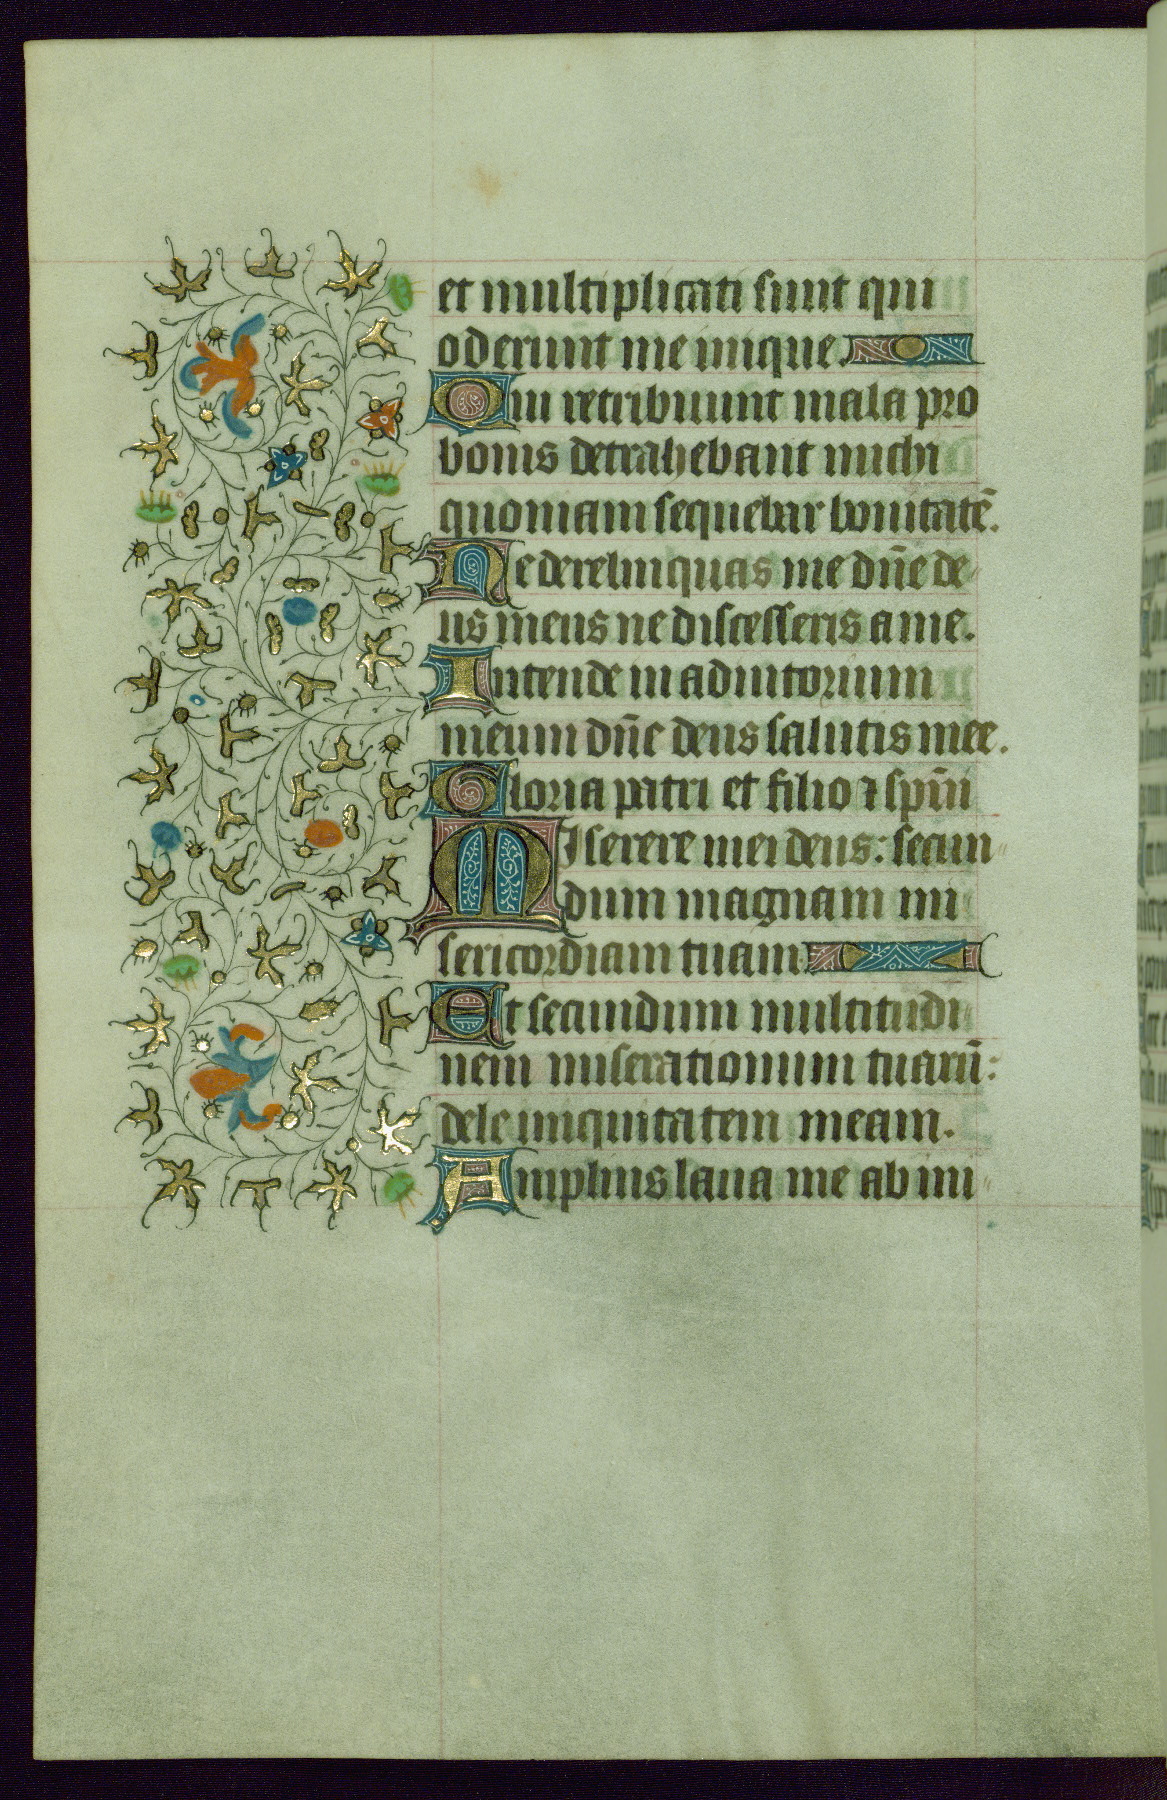 et multiplicati sunt qui
oderunt me inique.
Qui retribuunt mala pro
bonis detrahebant michi
quoniam sequebar bonitatē.
Ne derelinquas me dn̄e de-
us meus ne discesseris a me.
Intende in adiutorium
meum dn̄e deus salutis mee.
Gloria patri et filio ⁊ sp̄ui
Miserere mei deus: secun-
dum magnam mi
sericordiam tuam
Et secundum multitudi
nem miserationum tuarū:
dele iniquitatem meam.
Amplius laua me ab ini-